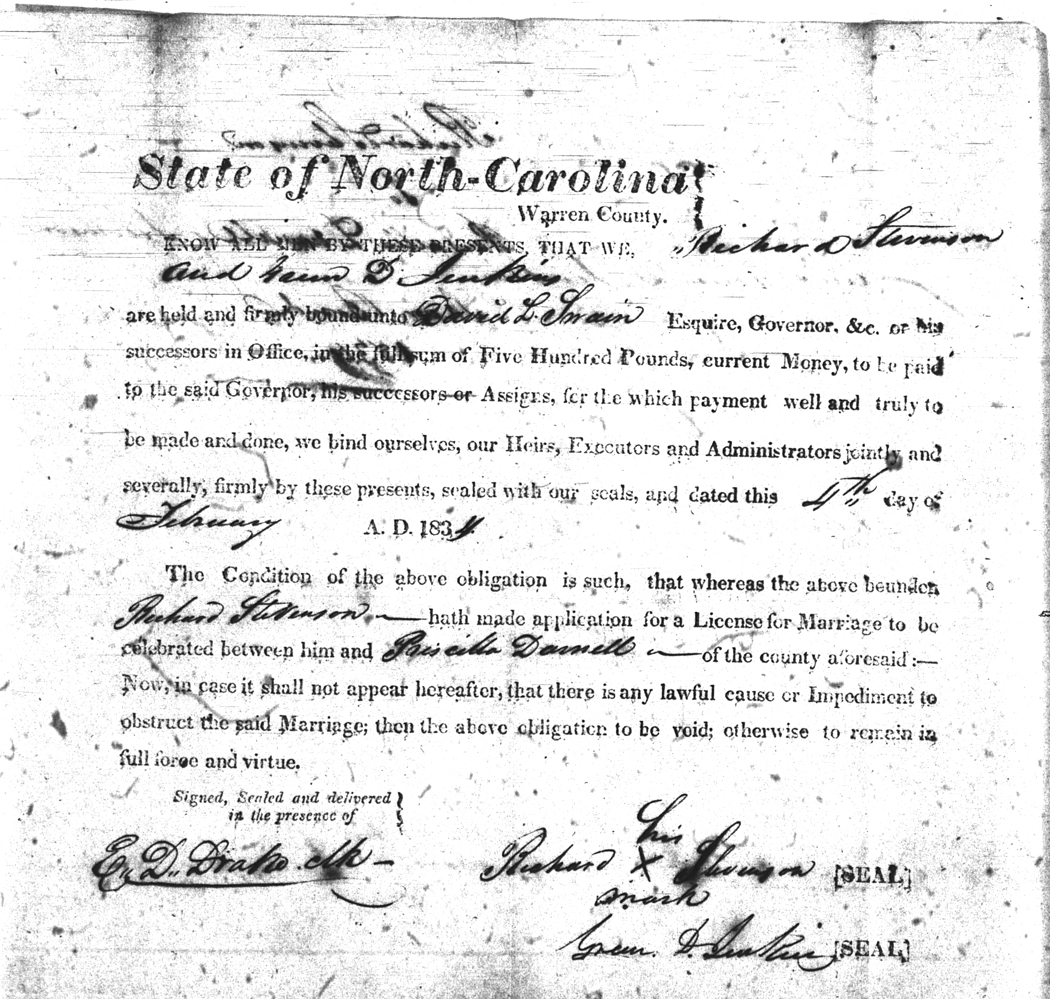 State of North-Carolina
Warren County.
KNOW ALL MEN BY THESE PRESENTS, THAT WE, Richard Stevenson
and Green D Jenkins
are held and firmly bound unto David L. Swain Esquire, Governor, &c. or his
successors in Office, in the full sum of Five Hundred Pounds, current Money, to be paid
to the said Governor, his successors or Assigns, for the which payment well and truly to
be made and done, we bind ourselves, our Heirs, Executors and Administrators jointly and
severally, firmly by these presents, sealed with our seals, and dated this 4th day of
February A. D. 1834
The Condition of the above obligation is such, that whereas the above bounden
Richard Stevenson hath made application for a License for Marriage to be
celebrated between him and Priscilla Darnell of the county aforesaid:—
Now, in case it shall not appear hereafter, that there is any lawful cause or Impediment to
obstruct the said Marriage; then the above obligation to be void; otherwise to remain in
full force and virtue.
Signed, Sealed and delivered
in the presence of
his
E. D. Drake clk Richard X Stevenson [SEAL]
mark
Green. D. Jenkins [SEAL]